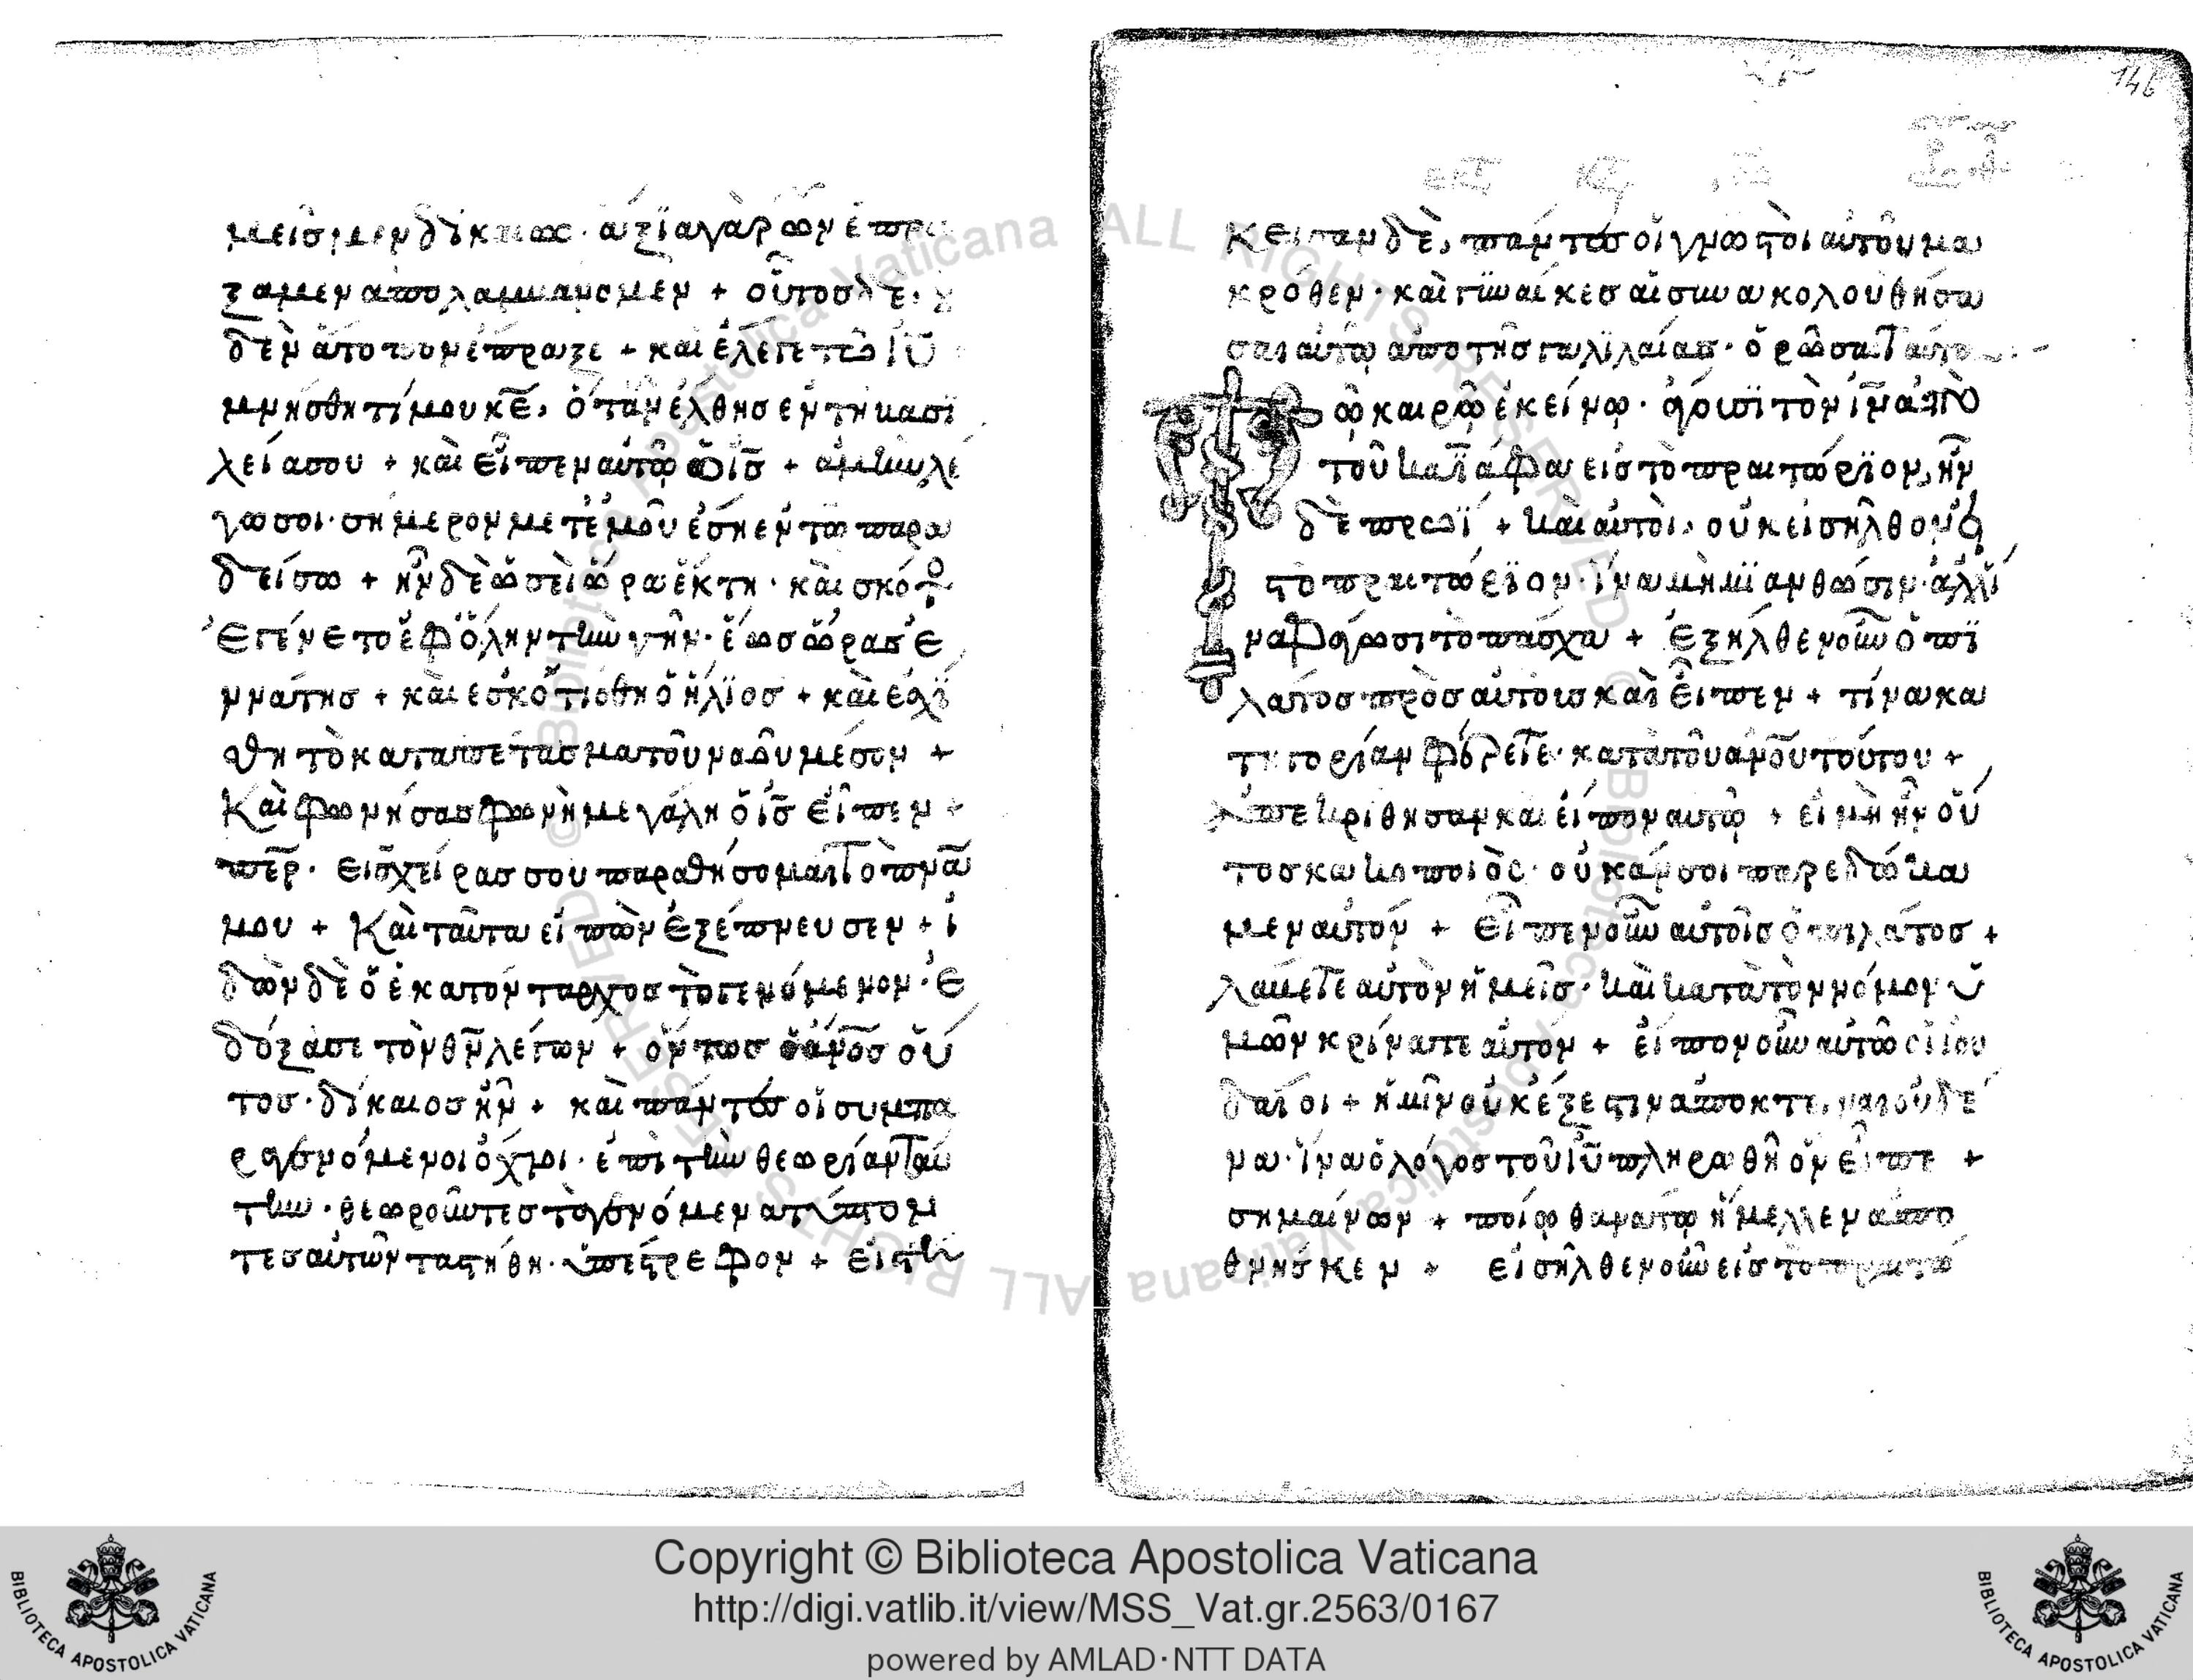 μεῖς μὲν δικαίως· ἄξϊα γὰρ ὧν ἐπρά
ξαμεν ἀπολαμβάνομεν + οὗτος δὲ, οὐ
δὲν ἄτοπον ἔπραξε + καὶ ἔλεγε τῶ ἰῦ
μνήσθητί μου κε̅, ὅταν ἔλθης ἐν τῆ βασϊ
λεία σου + καὶ εἶπεν αὐτῶ ὁ ἰς̅ + ἀμὴν λέ
γω σοι· σήμερον μετ ἐμοῦ ἔση ἐν τῶ παρα
δείσω + ἦν δὲ ὡσεὶ ὥρα ἕκτη· καὶ σκότος
ἐγένετο ἐφ ὅλην τὴν γῆν· ἕως ὥρας ἐ
ννάτης + καὶ ἐσκοτίσθη ὁ ἥλϊος + καὶ ἐσχΐ
σθη τὸ καταπέτασμα τοῦ ναοῦ μέσον +
Καὶ φωνήσας φωνῆ μεγάλη ὁ ἰς̅ εἶπεν +
περ̅· εἰς χεῖρας σου παραθήσομαι τὸ πνα̅
μου + Καὶ ταῦτα εἰπὼν ἐξέπνευσεν + ἰ
δὼν δὲ ὁ ἑκατόνταρχος τὸ γενόμενον· ἐ
δόξασε τὸν θν̅ λέγων + ὄντως ὁ ἄνος̅ οὗ
τος· δίκαιος ἦν + καὶ πάντες οἱ συμπα
ραγενόμενοι ὄχλοι· ἐπὶ τὴν θεωρίαν ταύ
την· θεωροῦντες τὰ γενόμενα τύπτον
τες αὐτῶν τὰ στήθη· ὑπέστρεφον + εἱστή
146
Κεισαν δὲ, πάντες οἱ γνωστοὶ αὐτοῦ μα
κρόθεν· καὶ γυναίκες αἱ συνακολουθήσα
σαι αὐτῶ ἀπὸ τῆς γαλϊλαίας· ὁρῶσαι ταῦτα
Τῶ καιρῶ ἐκείνω· ἄγουσϊ τὸν ἰν̅ ἀπὸ
τοῦ καϊάφα εἰς τὸ πραιτώρϊον, ἦν
δὲ πρωΐ + καὶ αὐτοὶ, οὐκ εἰσῆλθον εἰς
τὸ πραιτώρϊον· ἵνα μὴ μϊανθῶσιν· ἀλλ ἵ
να φάγωσι τὸ πάσχα + ἐξῆλθεν οὖν ὁ πϊ
λάτος πρὸς αὐτοὺς καὶ εἶπεν + τίνα κα
τηγορίαν φέρετε· κατὰ τοῦ ανου̅ τούτου +
ἀπεκρίθησαν καὶ εἶπον αὐτῶ + εἰ μὴ ἦν οὗ
τος κακοποιὸς· οὐκ ἄν σοι παρεδώκα
μεν αὐτόν + εἶπεν οὖν αὐτοῖς ὁ πιλάτος +
λάβετε αὐτὸν ἡμεῖς· καὶ κατὰ τὸν νόμον ὑ
μῶν κρίνατε αὐτόν + εἶπον οὖν αὐτῶ οἱ ἰου
δαῖοι + ἡμῖν οὐκ ἔξεστιν ἀποκτεῖναι οὐδέ
να· ἵνα ὁ λόγος τοῦ ἰῦ πληρωθῆ ὃν εἶπε +
σημαίνων + ποίω θανάτω ἤμελλεν ἀπο
θνήσκεν + εἰσῆλθεν οὖν εἰς τὸ πραιτώ
Copyright © Biblioteca Apostolica Vaticana
http://digi.vatlib.it/view/MSS_Vat.gr.2563/0167
powered by AMLAD·NTT DATA
BIBLIOTECA APOSTOLICA VATICANA
BIBLIOTECA APOSTOLICA VATICANA